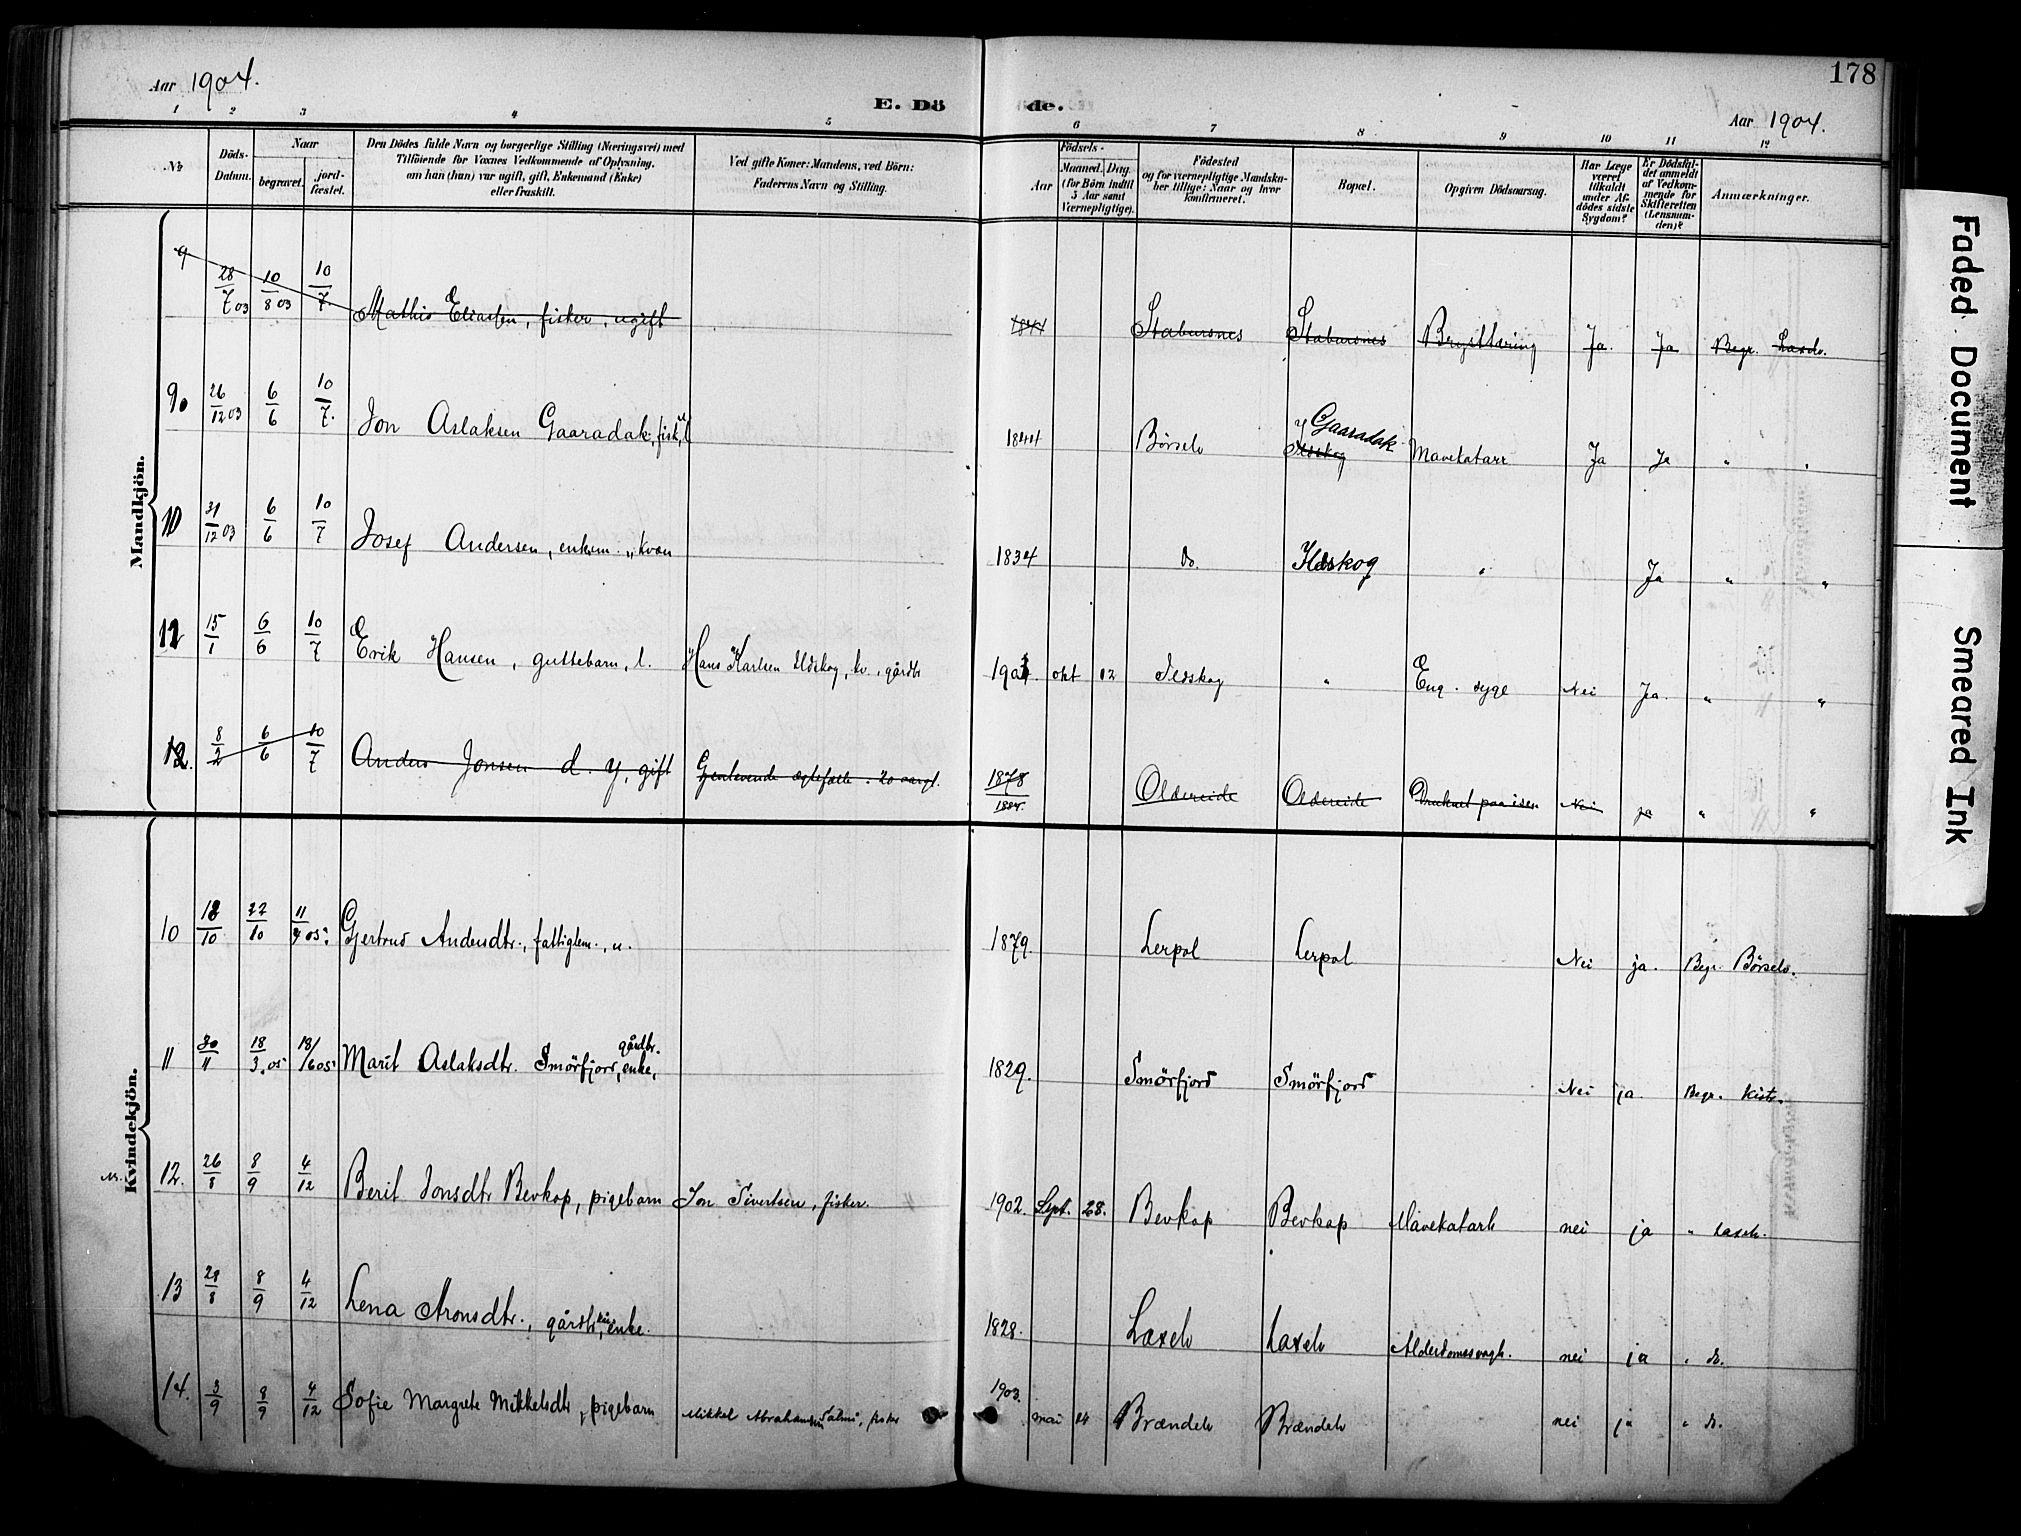 178
Aar 1904.
E. Döde.
Aar 1904.
1 2 3 4 5 6 7 8 9 10 11 12
No
Döds-Datum.
Naar
begravet.
jord-fæstet.
Den Dödes fulde Navn og borgerlige Stilling (Næringsvei) med
Tilföiende for Voxnes Vedkommende af Oplysning,
om han (hun) var ugift, gift, Enkemand (Enke)
eller fraskilt.
Ved gifte Koner: Mandens, ved Börn:
Faderens Navn og Stilling.
Födsels-
Aar
Maaned.
Dag.
(for Börn indtil
5 Aar samt
Værnepligtige).
Födested
og for værnepligtige Mandska-
ber tillige: Naar og hvor
konfirmeret.
Bopæl.
Opgiven Dödsaarsag.
Har Læge
været
tilkaldt
under Af-
dödes sidste
Sygdom?
Er Dödsfal-
det anmeldt
af Vedkom-
mende for
Skifteretten
(Lensman-
den)?
Anmærkninger.
Mandkjön.
9 28/7 03 10/8 03 10/7. Mathis Eliassen, fisker, ugift Stabursnes Stabursnes Brysttæring Ja. Ja Begr. Laxelv.
9 26/12 03 6/6 10/7. Jon Aslaksen Gaaradak, fisk, 1844 Börselv Gaaradak Ildskog Mavekatarr Ja Ja " "
10 31/12 03 6/6 10/7 Josef Andersen, enkem., kvæn 1834 do. Ildskog " Ja " "
11 15/1 6/6 10/7 Erik Hansen, guttebarn, l. Hans Karlsen Ildskog, kv., gårdbr okt 12 Ildskog " Eng. syge Nei Ja. " "
12. 8/2 6/6 10/7 Anders Jonsen d. y, gift Gjenlevende ægtefælle. 1878 1884. Oldereide Oldereide Druknet paa isen Nei ja " "
Kvindekjön.
10 18/10 22/10 11/4 05. Gjertrud Andersdtr., fattiglem., u. 1879. Lerpol Lerpol Nei ja. Begr. Börselv.
11 30/11 18/3.05 18/6 05 Marit Aslaksdtr. Smörfjord, gårdbr. enke, 1829. Smörfjord Smörfjord Nei ja. Begr. Kistr.
12. 26/8 8/9 4/12 Berit Jonsdtr Bevkop, pigebarn Jon Sivertsen, fisker. 1902. Sept. 28. Bevkop Bevkop Mavekatarh nei ja " Laxelv.
13 28/8 8/9 4/12 Lena Aronsdtr., gårdbr., enke. 1828. Laxelv Laxelv Alderdomssvagh. nei ja " do.
14. 3/9 8/9 4/12 Sofie Margrete Mikkelsdtr, pigebarn Mikkel Abrahamsen Salmi, fisker 1903. mai 14 Brændelv Brændelv nei ja " do.
Faded Document
Smeared Ink